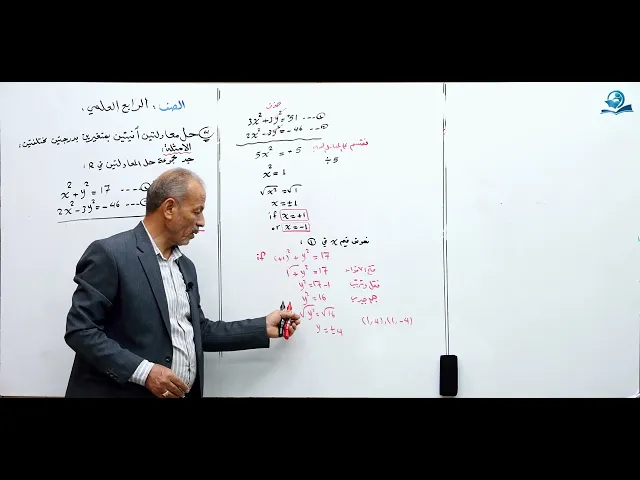 الصف : الرابع العلمي
حل معادلتين آنيتين بمتغيرين بدرجتين مختلفتين
الامثلة:
جد مجموعة حل المعادلتين في R :
x² + y² = 17 ----
2x² - 3y² = -46 ----
حذف
3x² + 3y² = 51 ---- ①
2x² - 3y² = -46 ---- ②
5x² = +5
÷5
x² = 1
√x² = √1
x = ±1
if x = +1
or x = -1
نعوض قيم x في ① :
if (+1)² + y² = 17
1 + y² = 17
y² = 17-1
y² = 16
√y² = √16
y = ±4
(1,4),(1,-4)